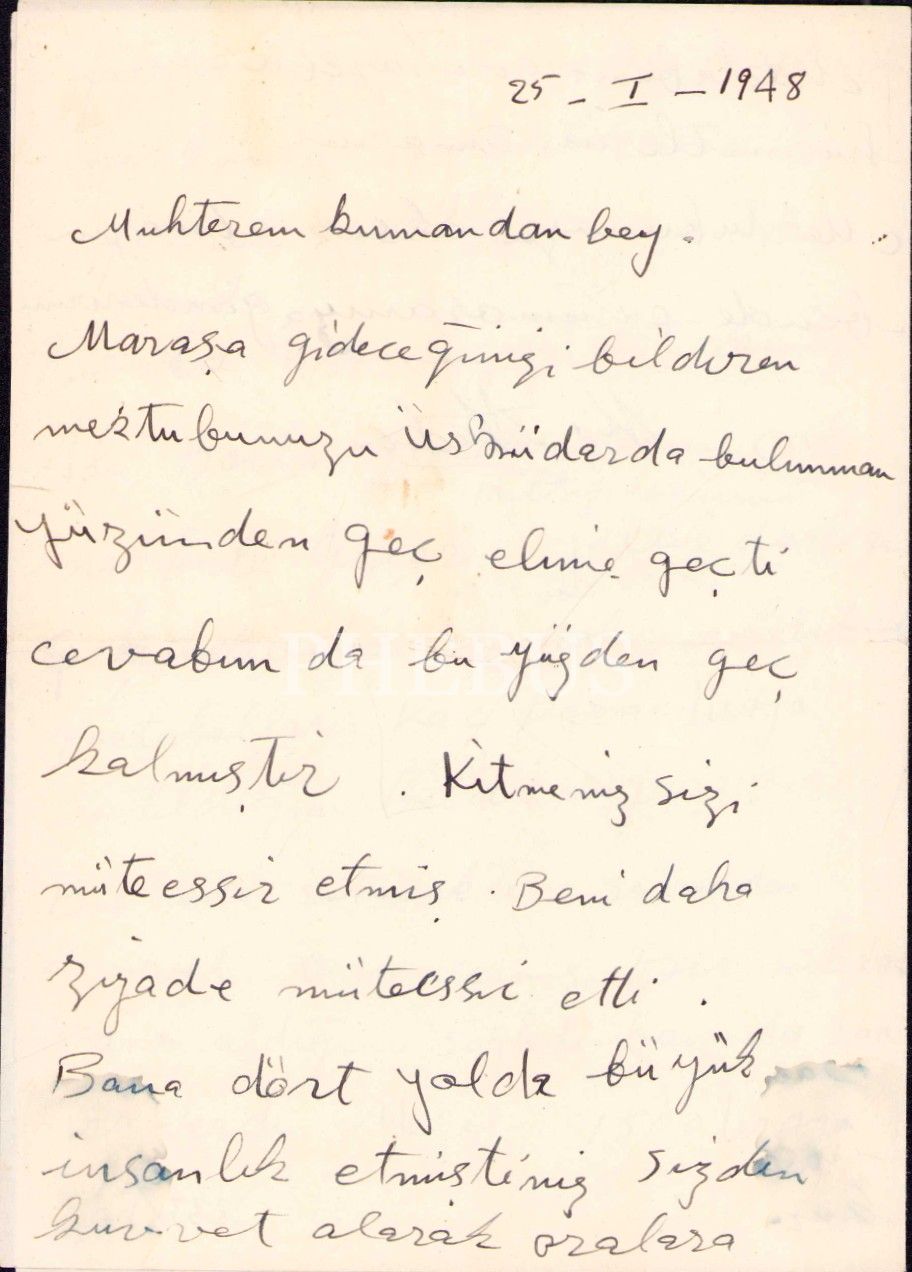 25 - I - 1948
Muhterem kumandan bey.
Maraşa gideceğinizi bildiren
mektubunuzu Üsküdarda bulunmam
yüzünden geç elime geçti
cevabım da bu yüzden geç
kalmıştır. Kitmeniz sizi
müteessir etmiş. Beni daha
ziyade müteessir etti.
Bana dört yolda büyük
insanlık etmiştiniz sizden
kuvvet alarak oralara
PHEBUS